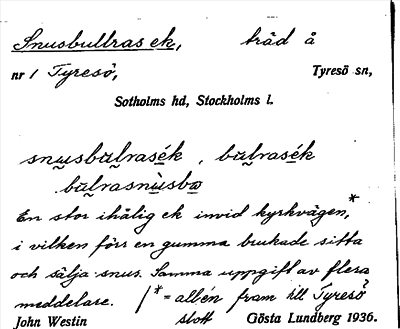 Snusbullras ek, träd å
nr 1 Tyresö, Tyresö sn,
Sotholms hd, Stockholms l.
snu̯sbu̯lrasék , bu̯lrasék
bu̯lrasnùsbo
En stor ihålig ek invid kyrkvägen,*
i vilken förr en gumma brukade sitta
och sälja snus. Samma uppgift av flera
meddelare. /* = allén fram till Tyresö
slott
John Westin Gösta Lundberg 1936.